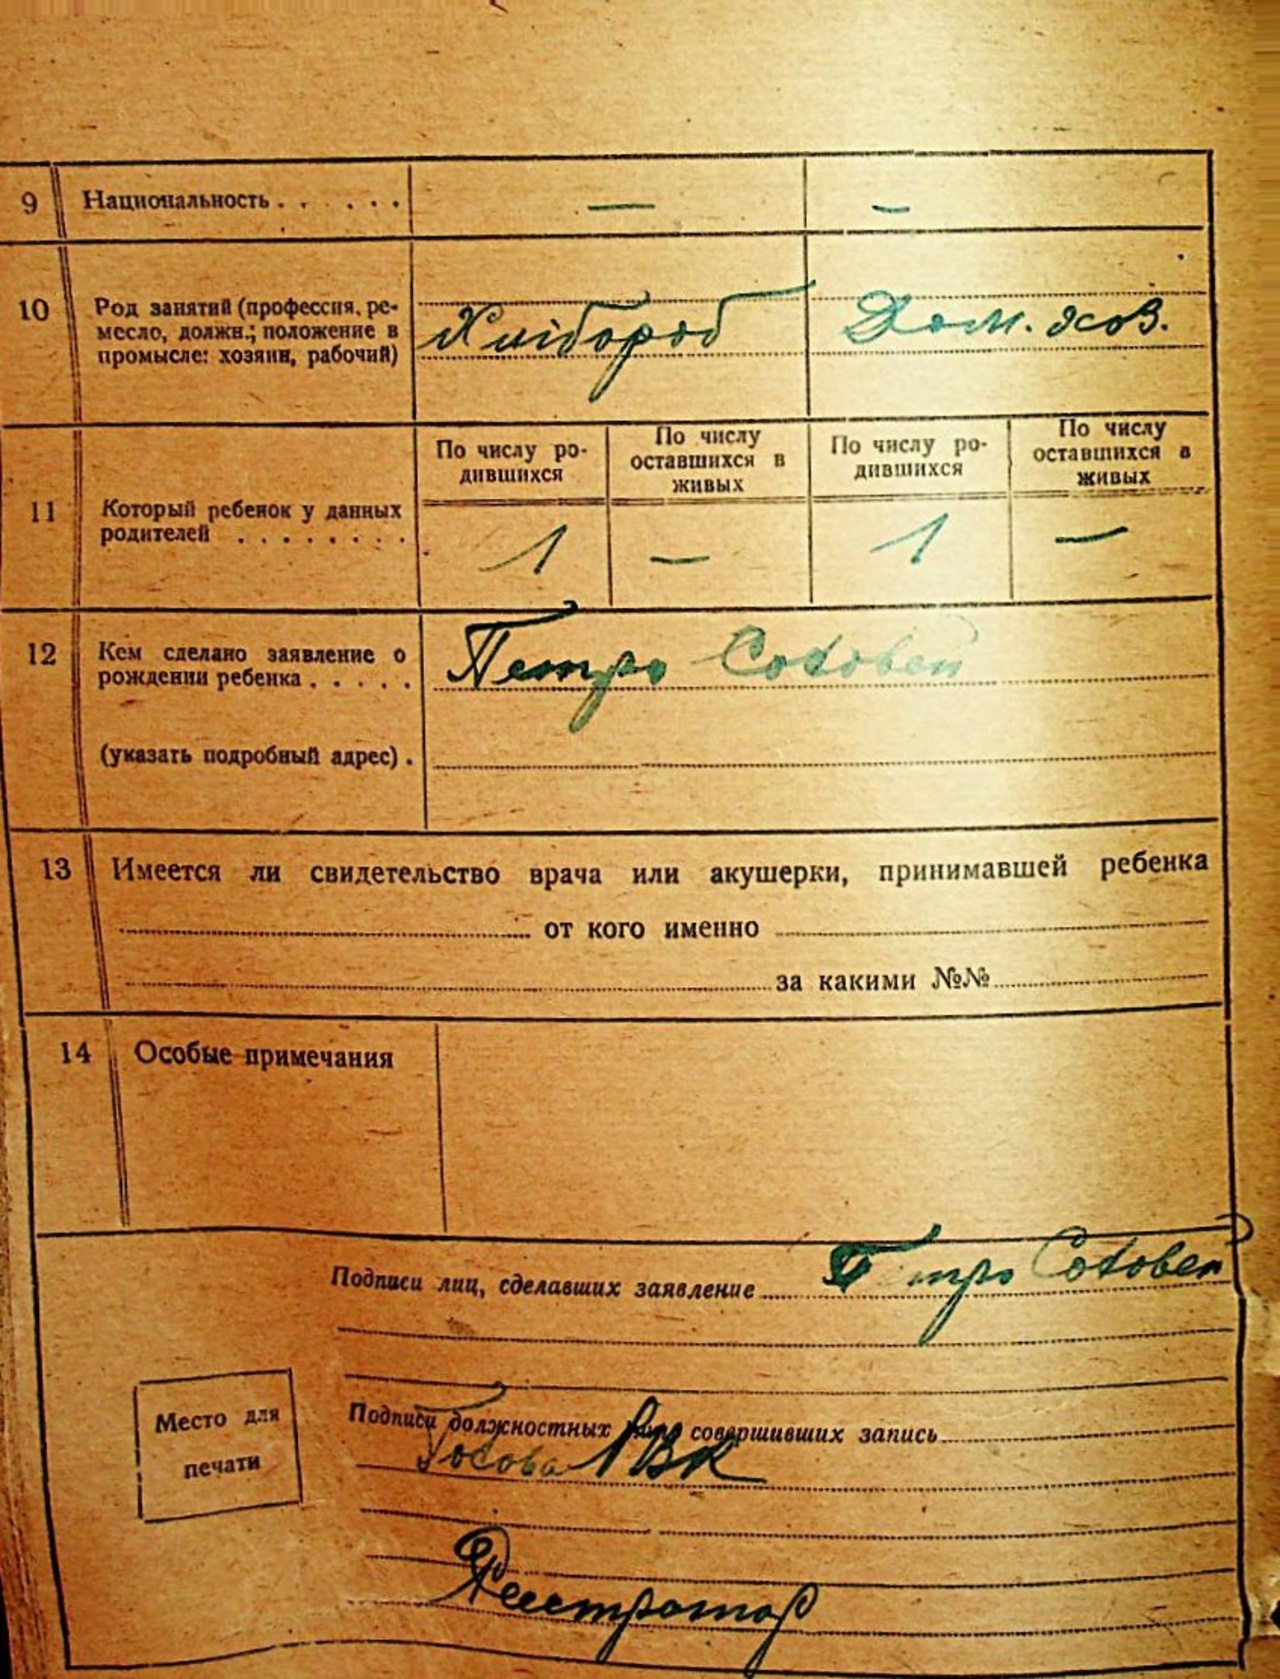 9 Национальность . . . . . . — —
10 Род занятий (профессия, ре-
месло, должн.; положение в
промысле: хозяин, рабочий)
Хлібороб Дом. хоз.
11 Который ребенок у данных
родителей . . . . . . . .
По числу ро-
дившихся
По числу
оставшихся в
живых
По числу ро-
дившихся
По числу
оставшихся в
живых
1 — 1 —
12 Кем сделано заявление о
рождении ребенка . . . . .
Петро Соловей
(указать подробный адрес) .
13 Имеется ли свидетельство врача или акушерки, принимавшей ребенка
от кого именно
за какими №№
14 Особые примечания
Подписи лиц, сделавших заявление Петро Соловей
Место для
печати
Подписи должностных лиц, совершивших запись
Голова
Реєстратор